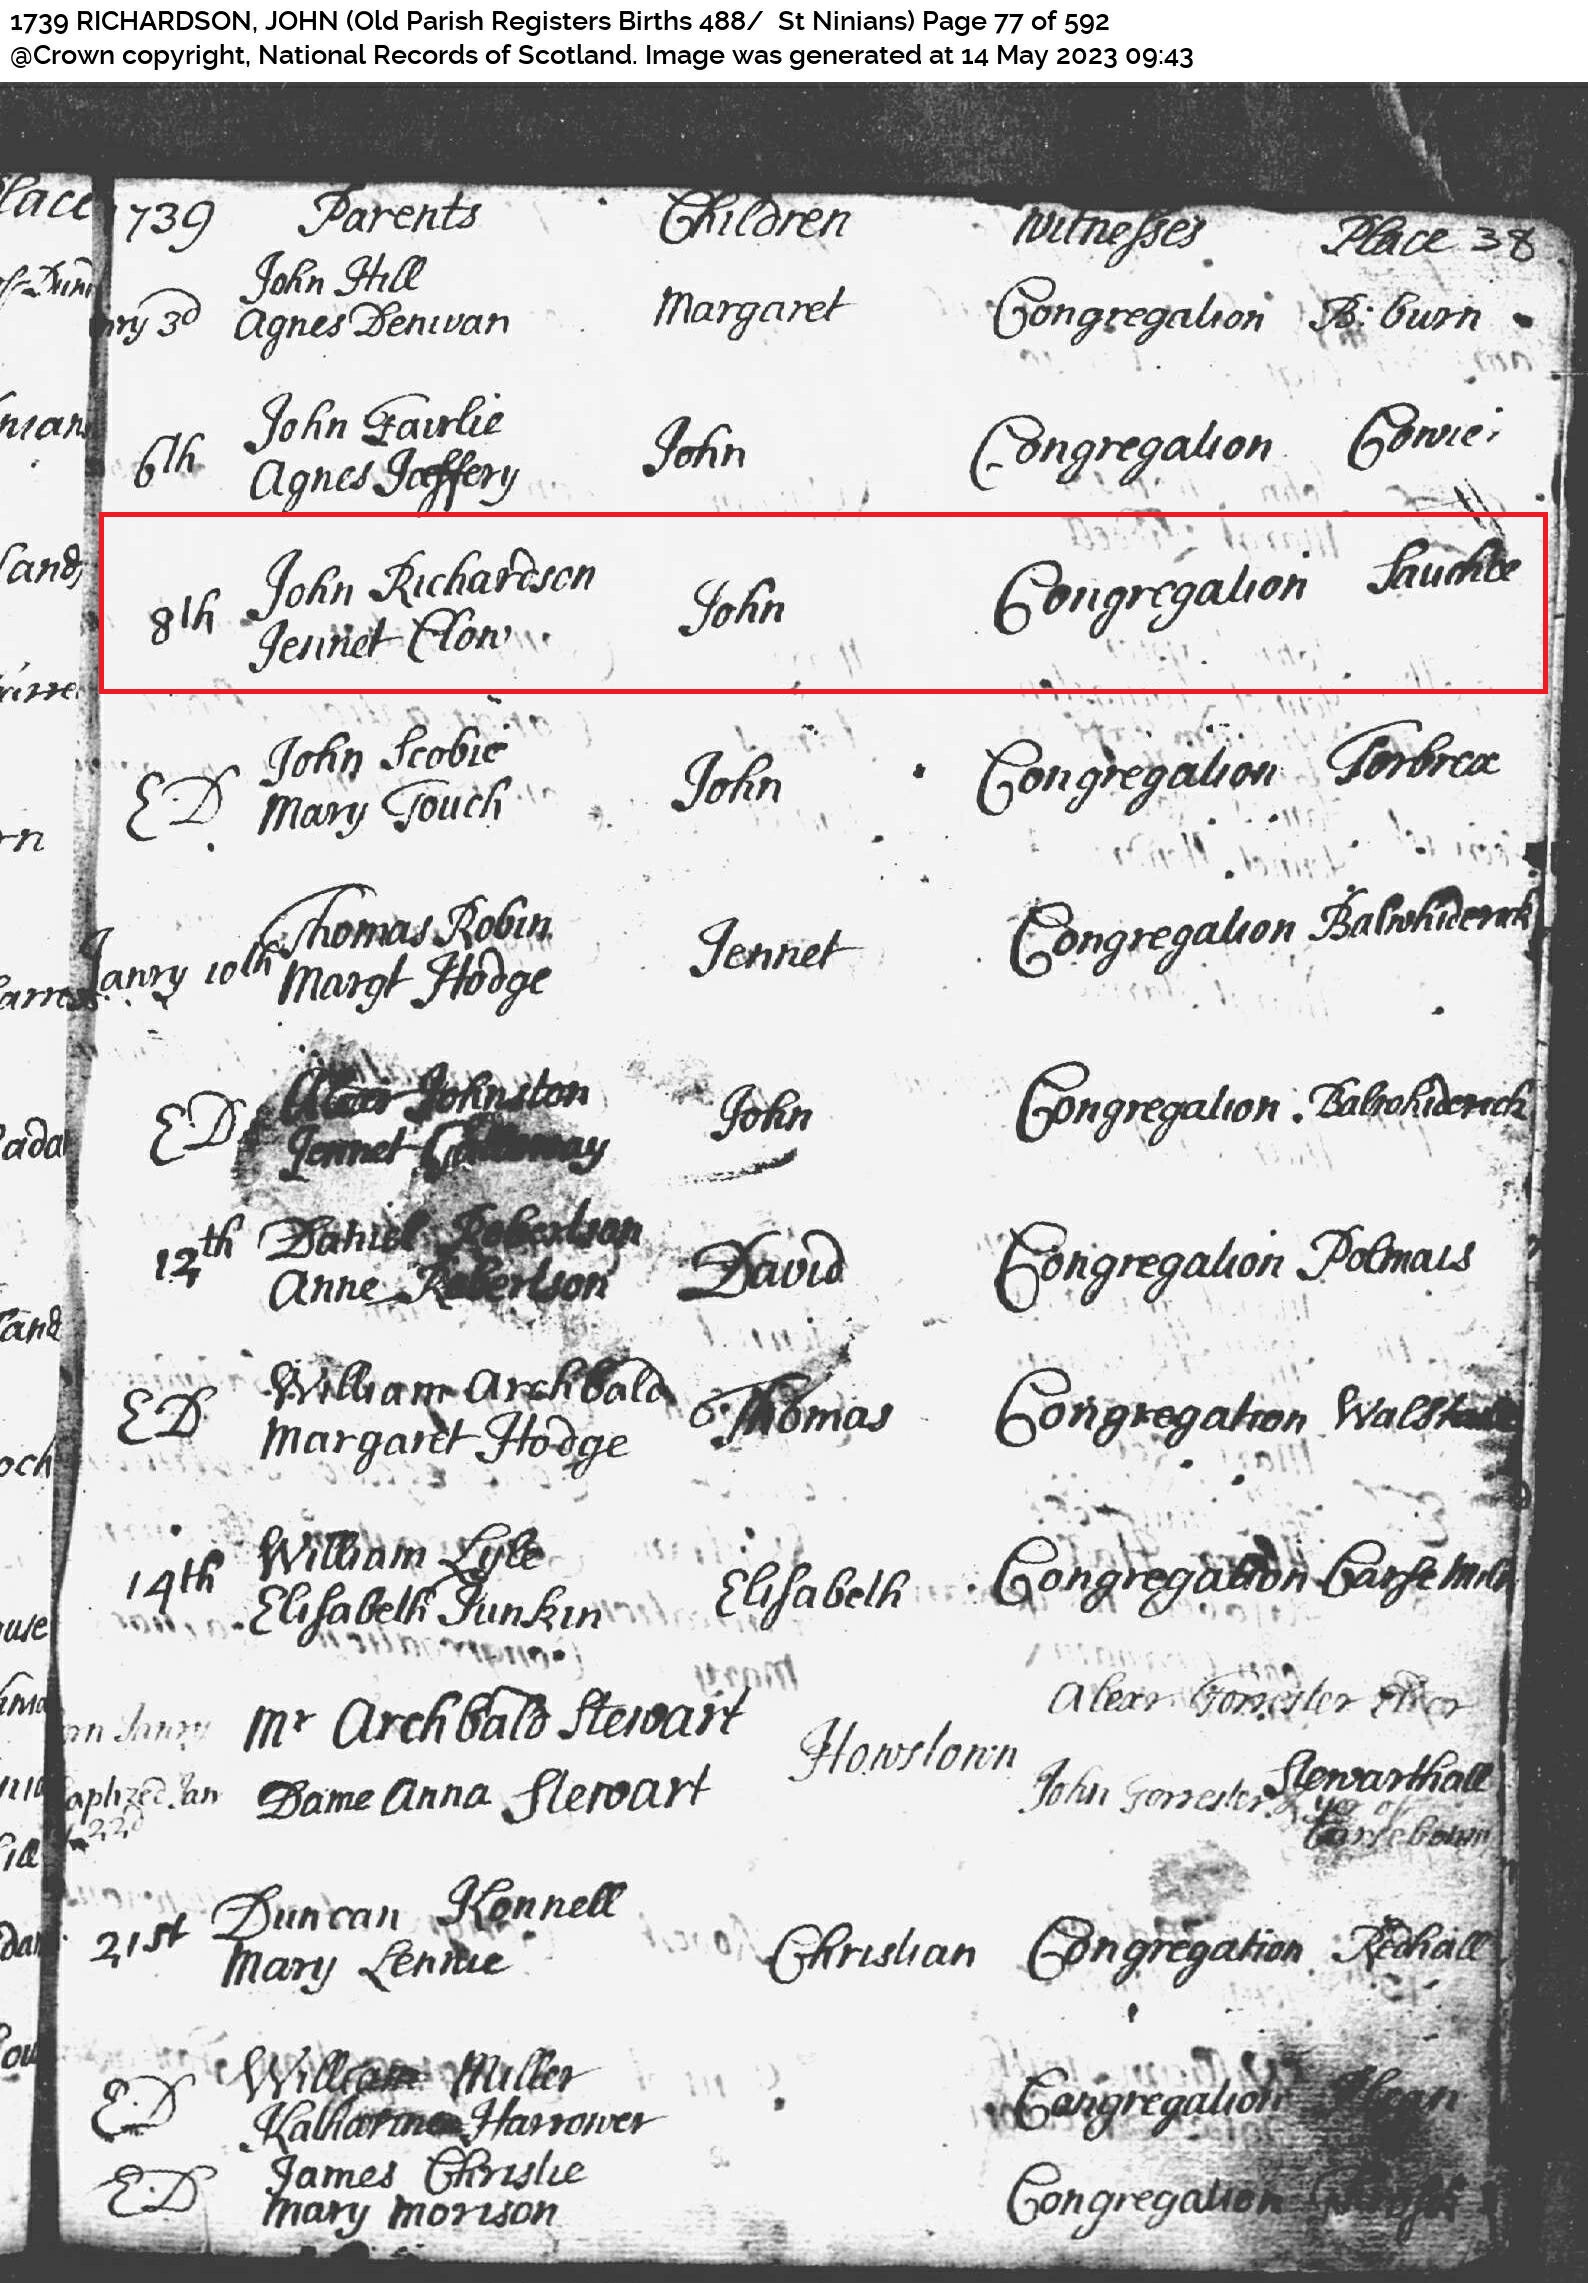 1739 RICHARDSON, JOHN (Old Parish Registers Births 488/ St Ninians) Page 77 of 592
@Crown copyright, National Records of Scotland. Image was generated at 14 May 2023 09:43
1739 Parents Children Witnesses Place 38
John Hill
nry 3d Agnes Denivan Margaret Congregation B: burn
John Fairlie
6th Agnes Jeffery John Congregation Cowie
John Richardson
8th Jennet Clow John Congregation Sauchie
John Scobie
E:D Mary Touch John Congregation Torbrex
Thomas Robin
Janry 10th Margt Hodge Jennet Congregation Balwhiderock
Johnston
E:D Jennet John Congregation Balwhiderock
Daniel Robertson
12th Anne Robertson David Congregation Polmais
William Archbald
E:D Margaret Hodge Thomas Congregation
William Lyle
14th Elisabeth Junkin Elisabeth Congregation Carse Miln
Janry Mr Archbald Stewart Howstown Alexr Forrester
aptized Jan Dame Anna Stewart John Forrester Stewarthall
22d
Duncan Konnell
21st Mary Lennie Christian Congregation Redhall
William Miller
E:D Katharine Harrower Congregation
James Christie
E:D Mary Morison Congregation